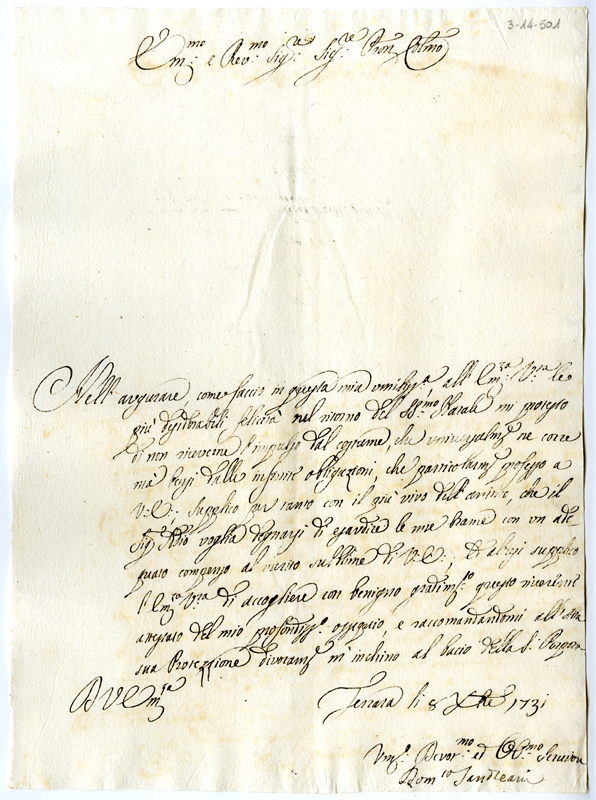 3-14-501
Em:mo e Rev:mo Sig:re Sig:re Pron Colmo
Nell' augurare, come faccio in questa mia umiliss:a, all' Em:za V:ra le
più desiderabili felicità nel ritorno del SS:mo Natale mi protesto
di non riceverne l'impulso dal costume, che universalm:te ne corre
mà bensi dalle infinite obligazioni, che particolarm:te professo a
V: E: Supplico per tanto con il più vivo dell' animo, che il
Sig:re Iddio voglia degnarsi di esaudire le mie brame con un ade-
quato compenso al merito sublime di V: E:, Ed altresi supplico
l' Em:za V:ra di accogliere con benigno gradim:to questo riverente
attestato del mio profondiss:o ossequio, e raccomandandomi all' alta
sua Protezzione divotam:te m' inchino al bacio della S: Porpora
D V Em:za
Ferrara li 8 Xbre 1731
Um:o Devot:mo ed Ob:mo Servitore
Dom:co